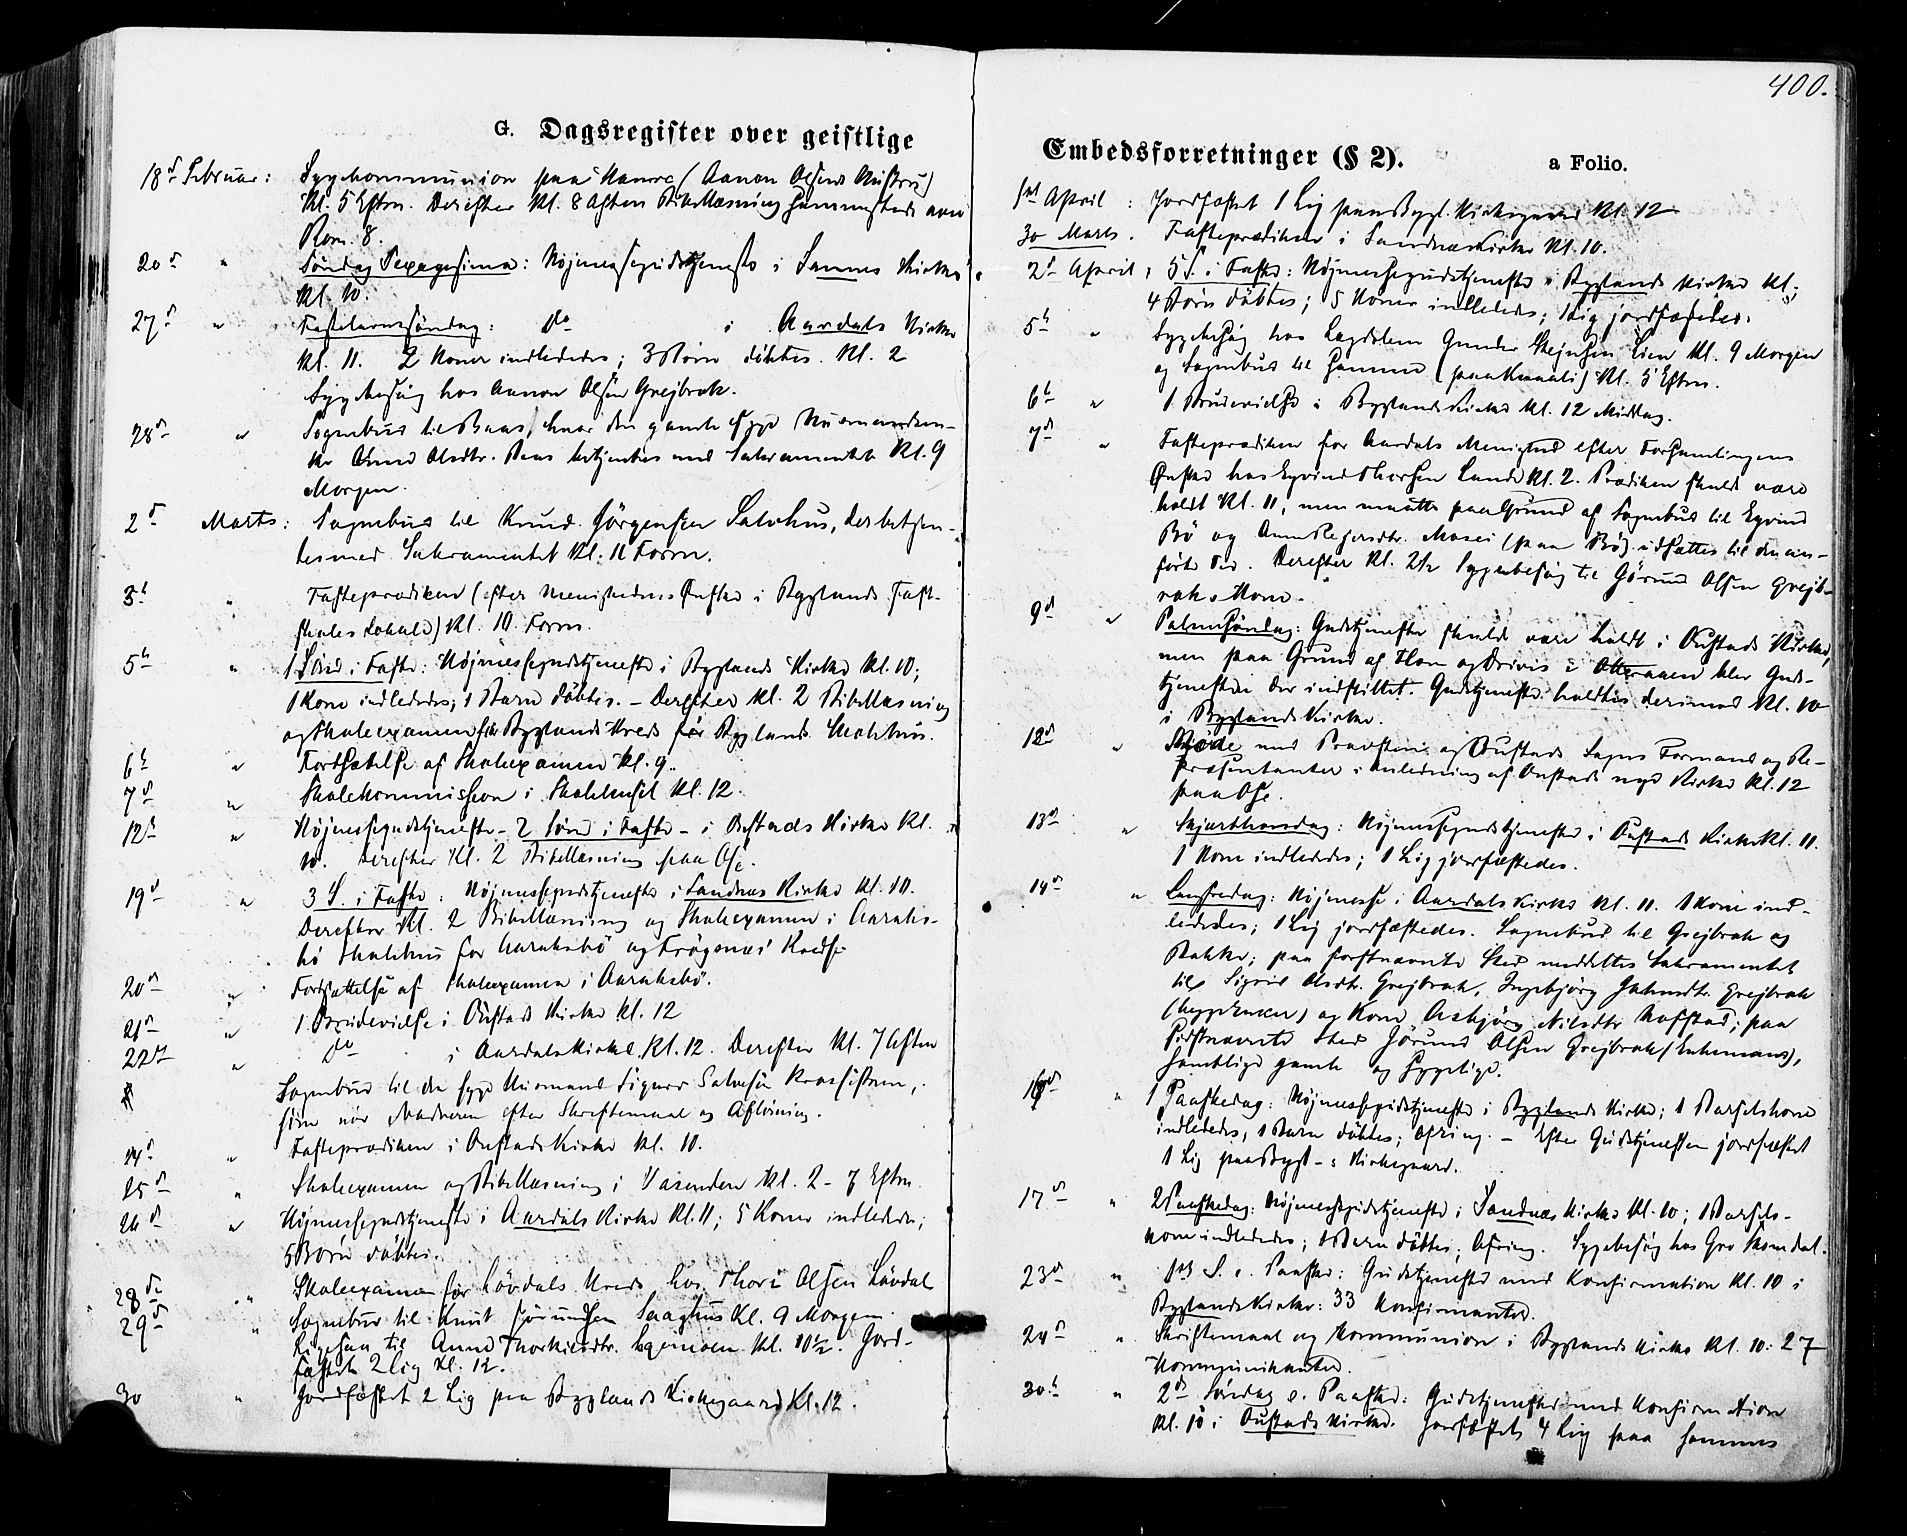 400.
G. Dagsregister over geistlige
18de Februar: Sygekommunion paa (Aanon Olsens Hustru)
Kl. 5 Eftm. Derefter Kl. 8 Aften Bibellæsning sammesteds over
Rom. 8.
20de " Söndag Sexagesima: Højmessegudstjeneste i Sannes Kirke
Kl. 10.
27de " Fastelavnssöndag: do i Aardals Kirke
Kl. 11. 2 Koner indlededes; 3 Börn döbtes. Kl. 2
Sygebesög hos Aanon Olsen Grejbrok.
28de " Sognebud til Baas, hvor den gamle syge
Anne Olsdtr. Baas betjentes med Sakramentet Kl. 9
Morgen.
2de Marts: Sognebud til Knud Jörgensen der betjen-
tes med Sakramentet Kl. 11 Form.
3de " Fasteprædiken (efter Menighedens Önske i Byglands Fast-
skoles Lokale) Kl. 10 Form.
5te " 1 Sönd. i Faste: Højmessegudstjeneste i Byglands Kirke Kl. 10;
1 Kone indlededes; 1 Barn döbtes. – Derefter Kl. 2 Bibellæsning
og Skoleexamen for Byglands Kreds paa Byglands Skolehus.
6te " Fortsættelse af Skoleexamen Kl. 9.
7de " Skolekommission i Skolehuset Kl. 12.
12te " Højmessegudstjeneste – 2 Sönd i Faste – i Östads Kirke Kl.
10. Derefter Kl. 2 Bibellæsning paa Ose.
19de " 3 S. i Faste: Højmessegudstjeneste i Sandnæs Kirke Kl. 10.
Derefter Kl. 2 Bibellæsning og Skoleexamen i Aaraks-
bö Skolehus for Aaraksbö og Frögnæs Kreds
20de " Fortsættelse af Skoleexamen i Aaraksbö.
21de " 1 Brudevielse i Östads Kirke Kl. 12
22de " do i Aardals Kirke Kl. 12. Derefter Kl. 7 Aften
Sognebud til den syge
som nöd Nadveren efter Skriftemaal og Aflösning.
24de " Fasteprædiken i Östads Kirke Kl. 10.
25de " Skoleexamen og Bibellæsning i Vasenden Kl. 2–7 Eftm
26de " Højmessegudstjeneste i Aardals Kirke Kl. 11; 5 Koner indlededes;
5 Börn döbtes.
28de " Skoleexamen for Lövdals Kreds hos Thore Olsen Lövdal
29de " Sognebud til Knut Jörundsen Kl. 9 Morgen.
Ligesaa til Anne Thorkildtr. Kl. 10½. Jord-
fæstet 2 Lig Kl. 12.
30 " Jordfæstet 2 Lig paa Byglands Kirkegaard Kl. 12.
Embedsforretninger (§ 2). a Folio.
1ste April: Jordfæstet 1 Lig paa Bygl. Kirkegaard Kl. 12
30 Marts. Fasteprædiken i Sandnæs Kirke Kl. 10.
2de April, 5 S. i Faste: Højmessegudstjeneste i Byglands Kirke Kl.
4 Börn döbtes; 5 Koner indlededes; 1 Lig jordfæstedes.
5te " Sygebesög hos Lægdslem Gunder Lien Kl. 9 Morgen
og Sognebud til Kl. 5 Eftm.
6te " 1 Brudevielse i Byglands Kirke Kl. 12 Middag.
7de " Fasteprædiken for Aardals Menighed efter Forsamlingens
Önske hos Eyvind Thorsen Lande Kl. 2. Prædiken skulde være
holdt Kl. 11, men maatte paa Grund af Sognebud til Eyvind
Bö og Anne (paa Bö) udsættes til den an-
förte Tid. Derefter Kl. 2½ Sygebesög til Jörund Olsen Grejb-
roks Kone.
9de " Palmesöndag: Gudstjeneste skulde være holdt i Östads Kirke,
men paa Grund af Flom og Drivis i Otteraaen blev Guds-
tjenesten der indstillet. Gudstjeneste holdtes derimod Kl. 10
i Byglands Kirke.
12de " Möde med Provsten og Östads Sogns Formænd og Re-
præsentanter i Anledning af Östads nye Kirke Kl. 12
paa Ose.
13de " Skjærthorsdag: Højmessegudstjeneste i Östads Kirke Kl. 11.
1 Kone indlededes; 1 Lig jordfæstedes.
14de " Langfredag: Højmesse i Aardals Kirke Kl. 11. 1 Kone ind-
lededes; 1 Lig jordfæstedes. Sognebud til Grejbrok og
Bakke; paa förstnævnte Sted meddeltes Sakramentet
til Sigrid Olsdtr. Grejbrok, Ingebjorg Grejbrok
og Kone Asbjörg Nilsdtr ; paa
sidstnævnte Sted Jörund Olsen Grejbrok (Enkemand),
samtlige gamle og sygelige.
16de " 1 Paaskedag: Højmessegudstjeneste i Byglands Kirke; 1 Barselkone
indlededes, 1 Barn döbtes; Ofring. – Efter Gudstjenesten jordfæstet
1 Lig paa Bygl–s Kirkegaard.
17de " 2 Paaskedag: Højmessegudstjeneste i Sandnæs Kirke Kl. 10; 1 Barsels-
kone indlededes; 1 Barn döbtes; Ofring. Sygebesög hos Gro Skomdal.
23de " 1ste S. e. Paaske: Gudstjeneste med Konfirmation Kl. 10 i
Byglands Kirke: 33 Konfirmanter.
24de " Skriftemaal og Kommunion i Byglands Kirke Kl. 10: 27
Kommunikanter.
30te " 2de Söndag e. Paaske: Gudstjeneste med Konfirmation
Kl. 10 i Östads Kirke. Jordfæstet 4 Lig paa sammes